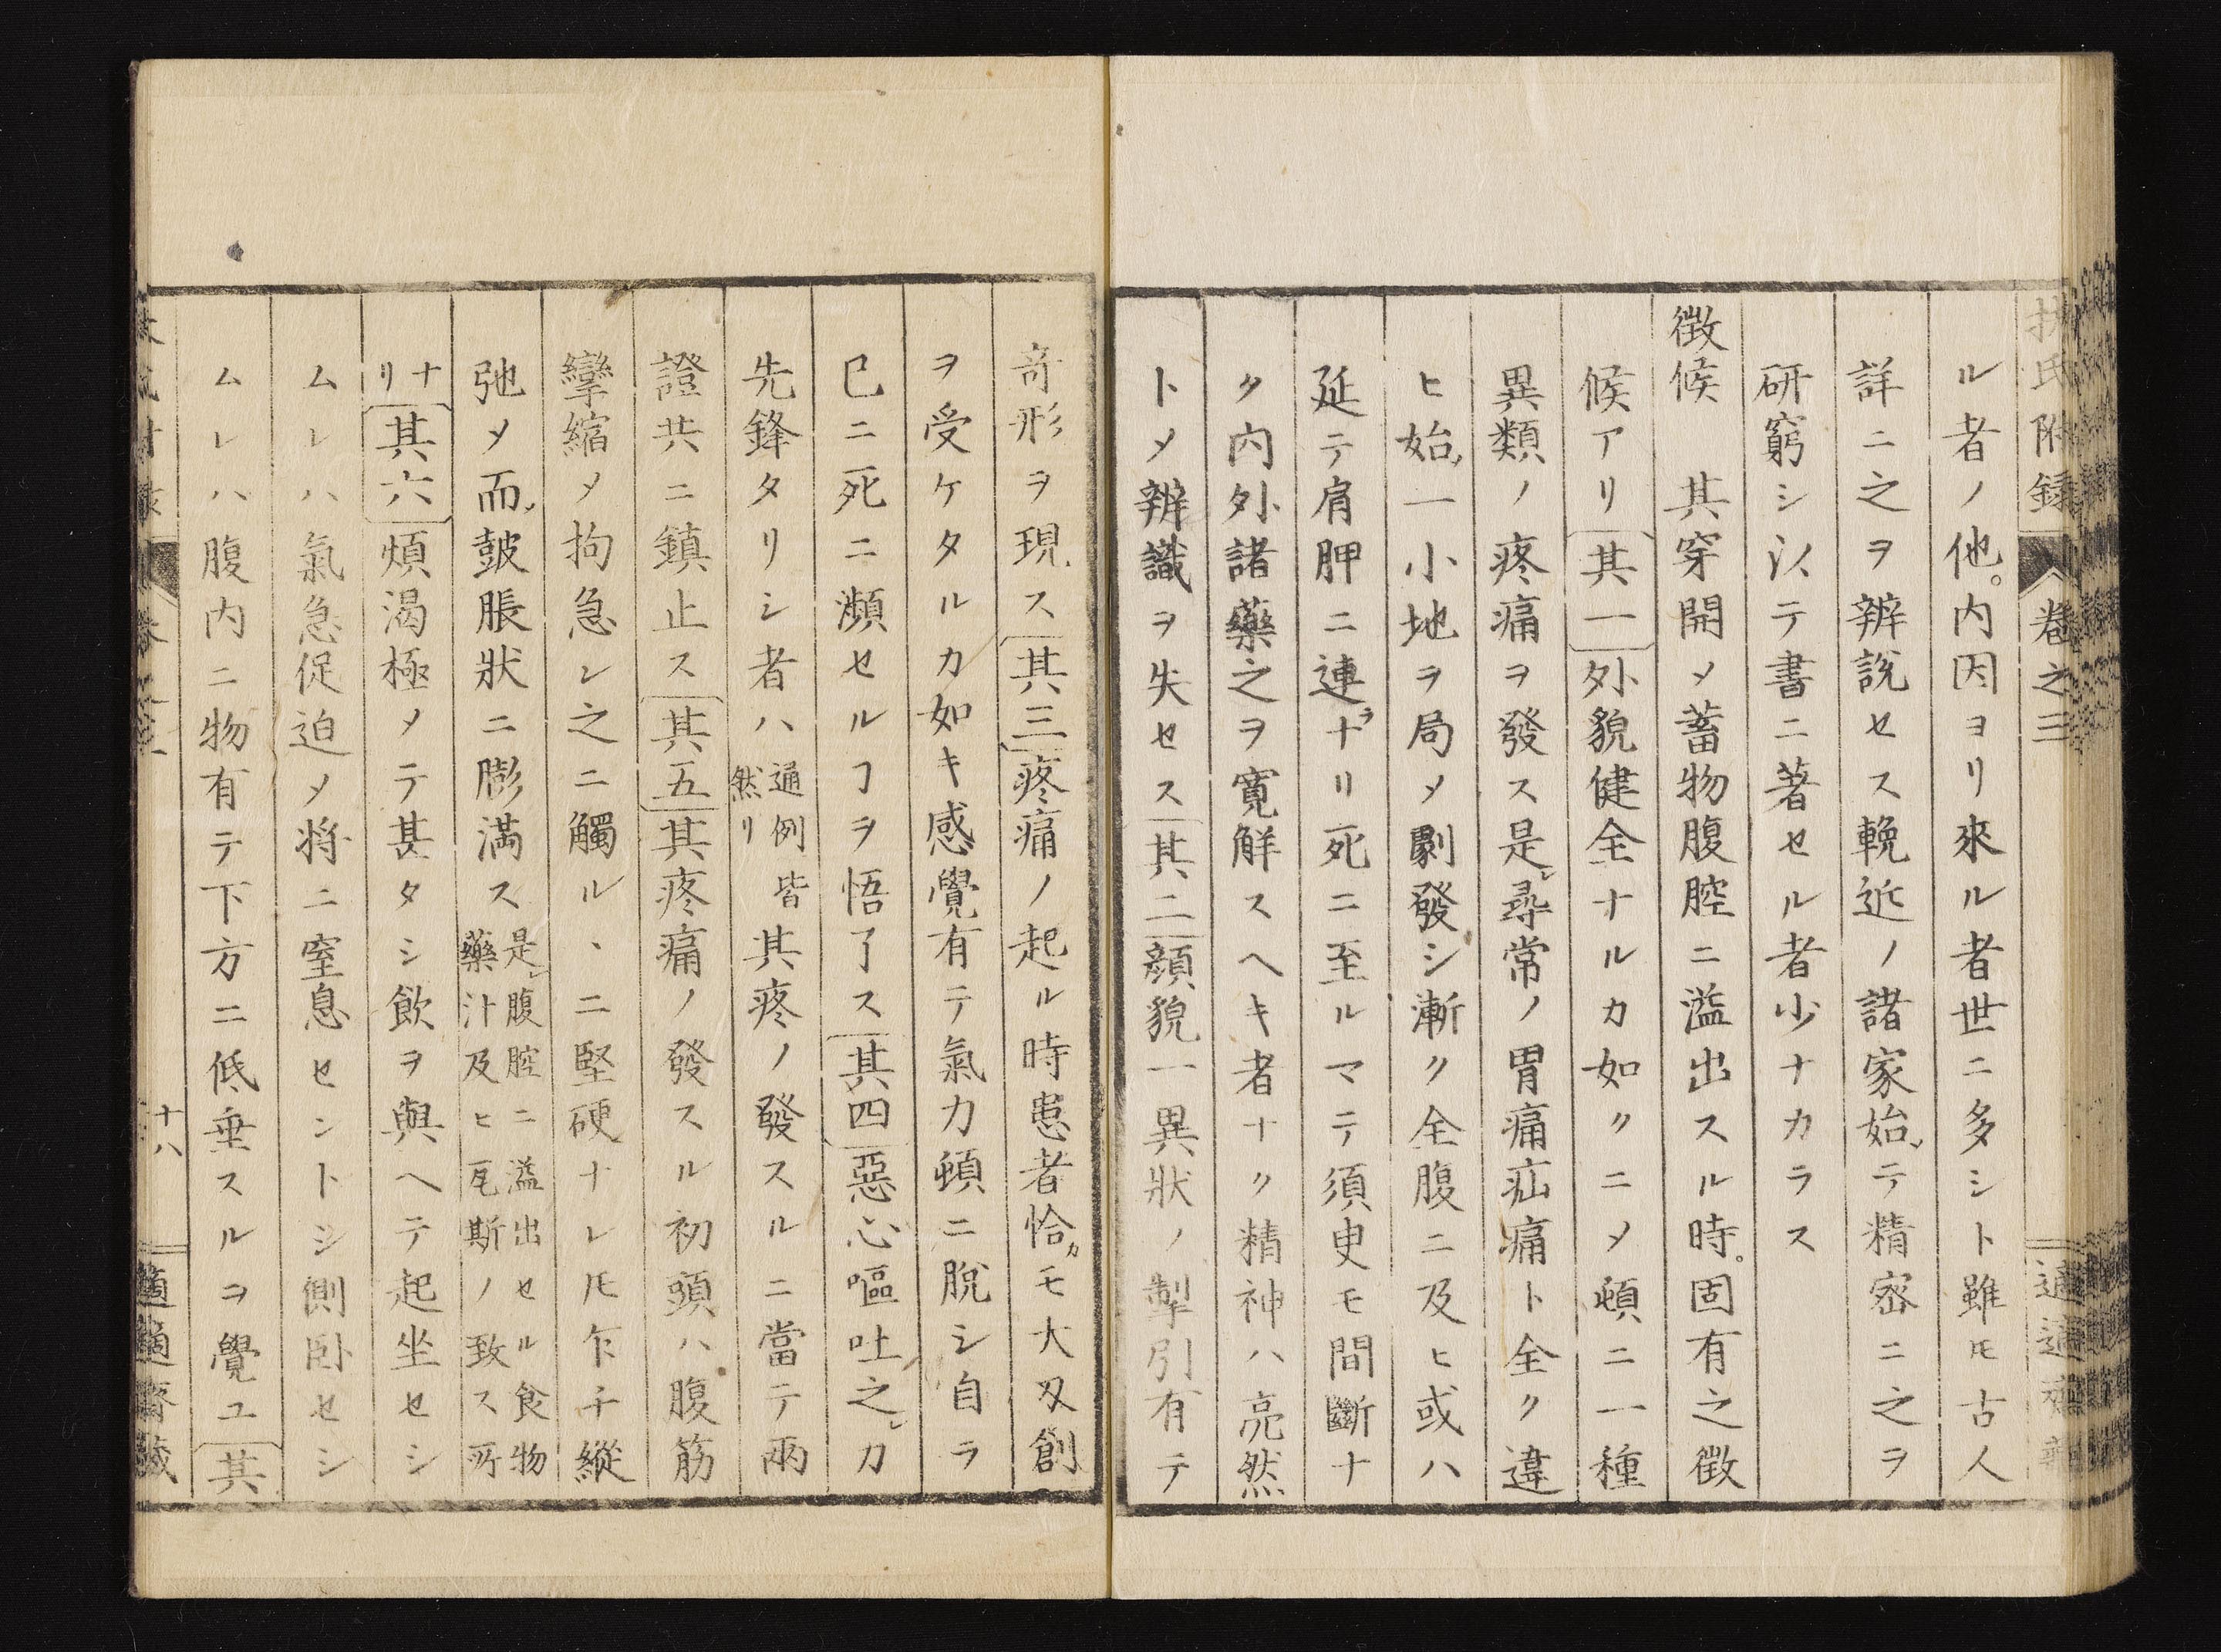 扶氏附録 卷之三 適適齋藏
ル者ノ他。内因ヨリ來ル者世ニ多シト雖𪜈古人
詳ニ之ヲ辨説セス輓近ノ諸家始メテ精密ニ之ヲ
研窮シ以テ書ニ著セル者少ナカラス
徴候 其穿開〆蓄物腹腔ニ溢出スル時。固有之徴
候アリ其一外貌健全ナルカ如クニ〆頓ニ一種
異類ノ疼痛ヲ發ス是レ尋常ノ胃痛疝痛ト全ク違
ヒ始メ一小地ヲ局〆劇發シ漸ク全腹ニ及ヒ或ハ
延テ肩胛ニ連ラナリ死ニ至ルマテ須臾モ間斷ナ
ク内外諸藥之ヲ寛解スヘキ者ナク精神ハ亮然
ト〆辨識ヲ失セス其二顔貌一異狀ノ掣引有テ
奇形ヲ現ス其三疼痛ノ起ル時患者恰カモ大刄創
ヲ受ケタルカ如キ感覺有テ氣力頓ニ脱シ自ラ
已ニ死ニ瀕セルヿヲ悟了ス其四惡心嘔吐之レカ
先鋒タリシ者ハ通例皆然リ其疼ノ發スルニ當テ兩
證共ニ鎮止ス其五其疼痛ノ發スル初頭ハ腹筋
攣縮〆拘急シ之ニ觸ルヽニ堅硬ナレ𪜈乍チ縱
弛〆而〆皷脹狀ニ膨滿ス是レ腹腔ニ溢出セル食物藥汁及ヒ瓦斯ノ致ス所
ナリ其六煩渇極〆テ甚タシ飲ヲ與ヘテ起坐セシ
ムレハ氣急促迫〆将ニ窒息セントシ側卧セシ
ムレハ腹内ニ物有テ下方ニ低垂スルヲ覺ユ其
卷之三 十八 適適齋藏